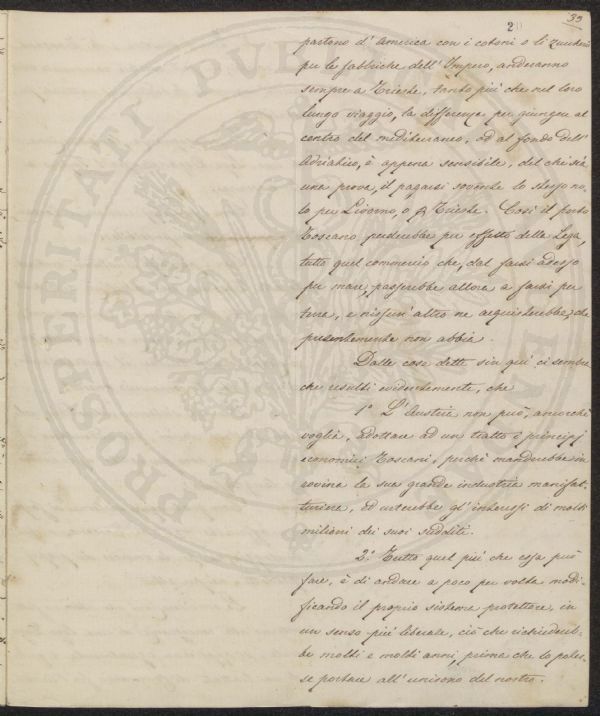 39
2
partono d'America con i cotoni o li zuccheri
per le fabbriche dell'Impero, anderanno
sempre a Trieste, tanto più che nel loro
lungo viaggio, la differenza per giungere al
centro del mediterraneo, od al fondo dell'
Adriatico, è appena sensibile, del che n'è
una prova, il pagarsi sovente lo stesso no-
lo per Livorno, o p Trieste. Così il porto
Toscano perderebbe per effetto della Lega,
tutto quel commercio che, dal farsi adesso
per mare, passerebbe allora a farsi per
terra, e nissun'altro ne acquisterebbe, che
presentemente non abbia.
Dalle cose dette sin qui ci sembra
che resulti evidentemente, che
1° L'Austria non può, ancorchè
voglia, adottare ad un tratto i principj
economici Toscani, perchè manderebbe in
rovina la sua grande industria manifat-
turiera, ed urterebbe gl'interessi di molti
milioni dei suoi sudditi.
2° Tutto quel più che essa può
fare, è di andare a poco per volta modi-
ficando il proprio sistema protettore, in
un senso più liberale, ciò che richiedereb-
be molti e molti anni, prima che lo potes-
se portare all'unisono del nostro.
PROSPERITATI PUBLI
EN